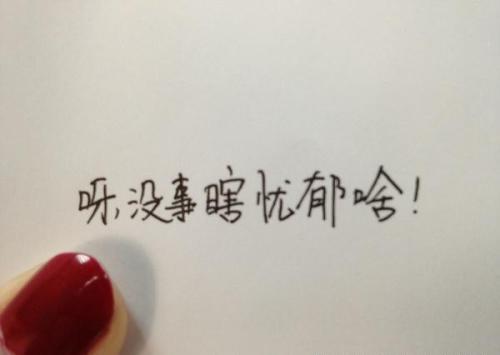 呀,没事瞎忧郁啥!